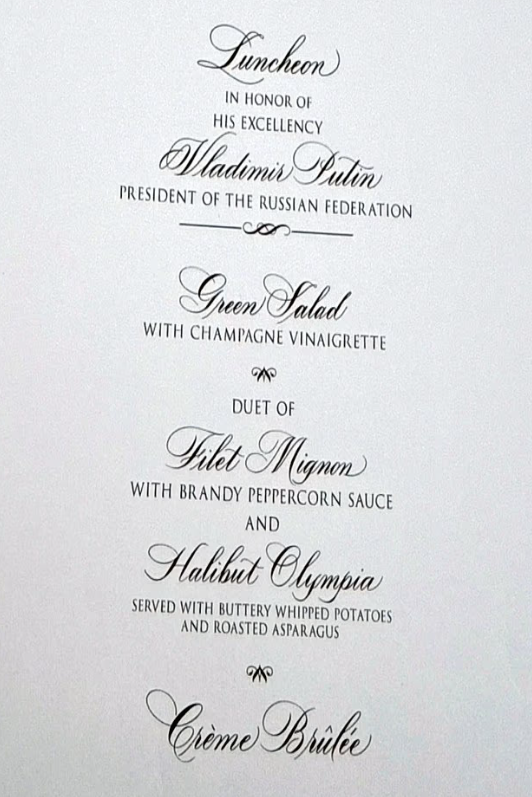 Luncheon
IN HONOR OF
HIS EXCELLENCY
Vladimir Putin
PRESIDENT OF THE RUSSIAN FEDERATION
Green Salad
WITH CHAMPAGNE VINAIGRETTE
DUET OF
Filet Mignon
WITH BRANDY PEPPERCORN SAUCE
AND
Halibut Olympia
SERVED WITH BUTTERY WHIPPED POTATOES
AND ROASTED ASPARAGUS
Crème Brûlée